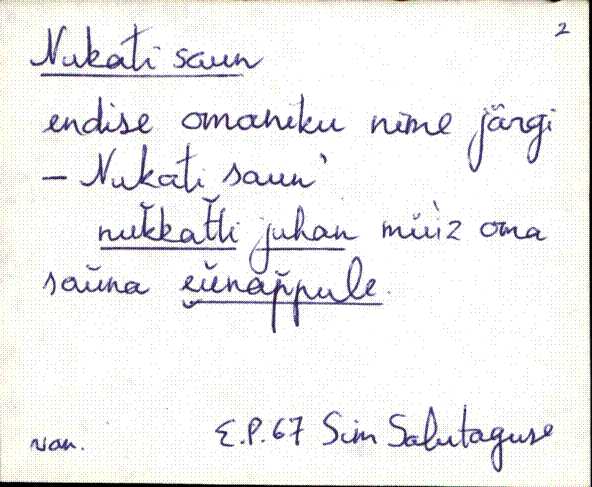 2
Nukati saun
endise omaniku nime järgi
– Nukati saun'
nŭkkat̆li juhan müìz oma
saŭna eŭnap̆pule.
van. E.P.67 Sim Salutaguse